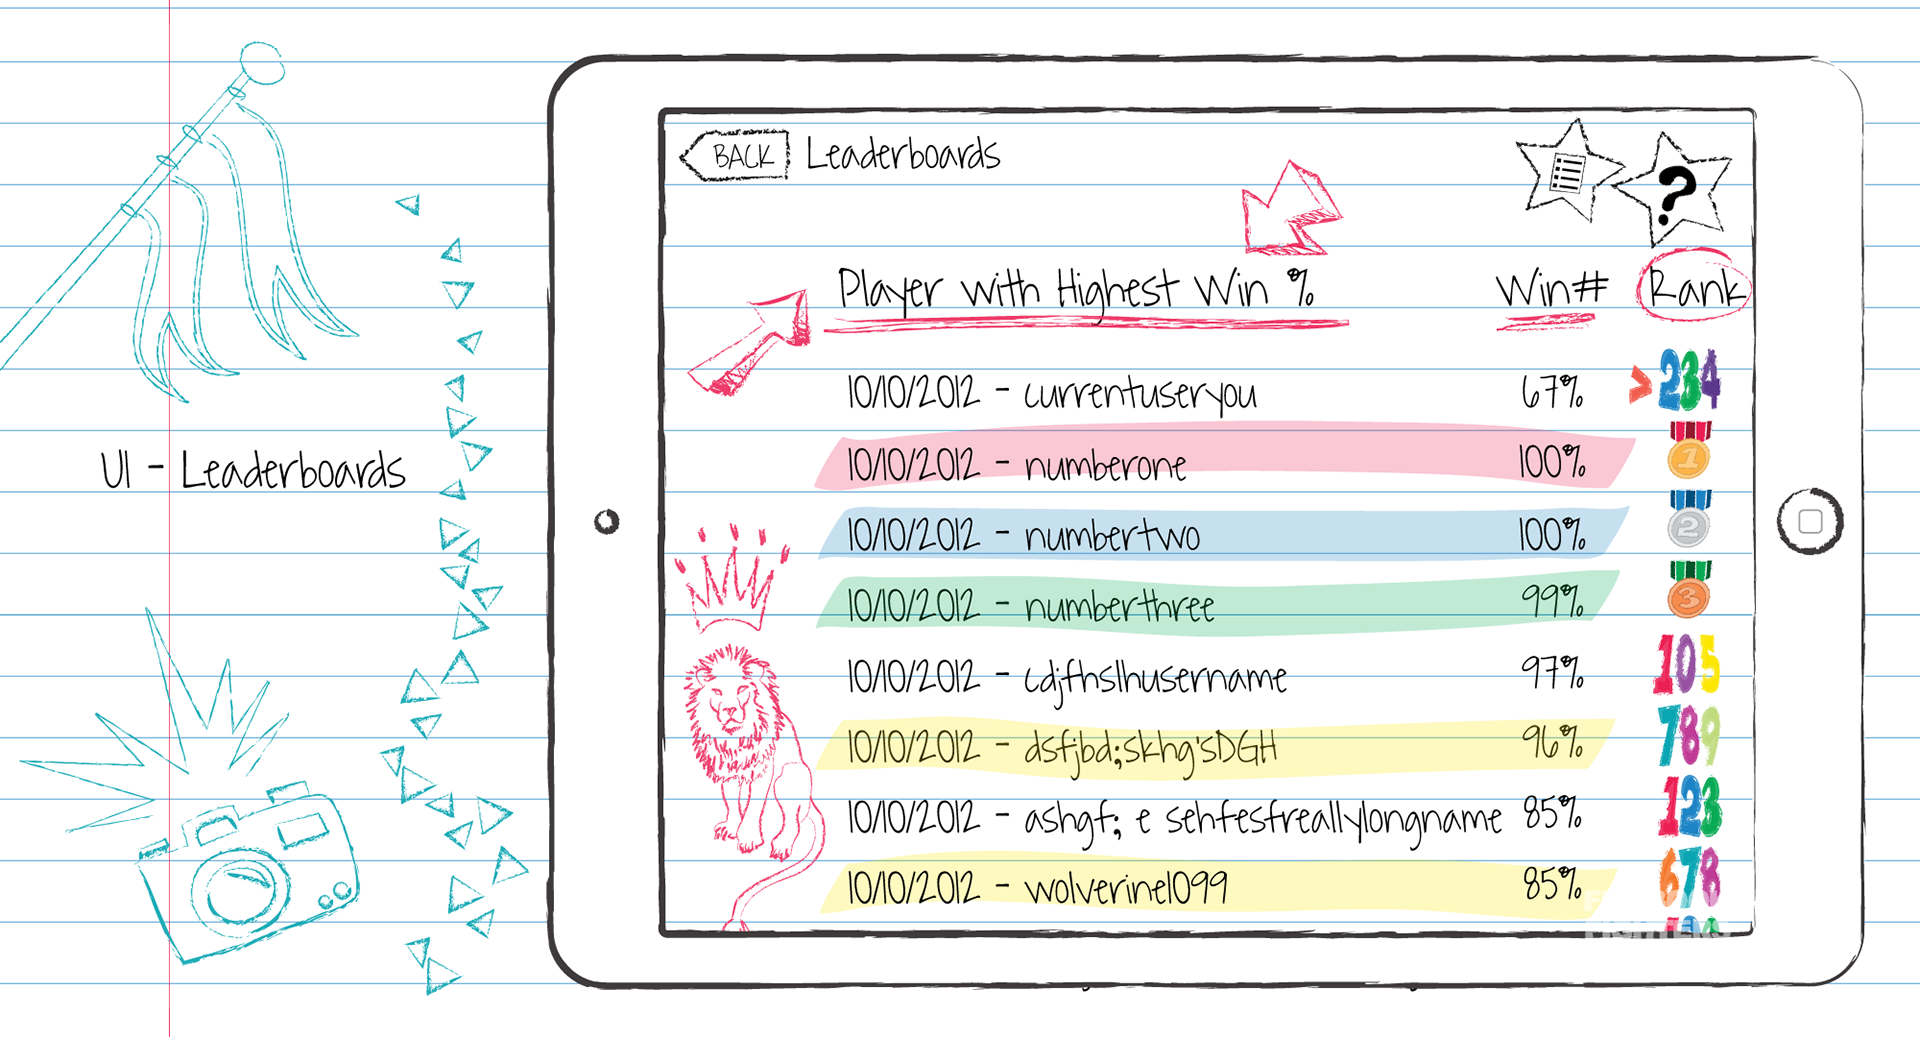 UI - Leaderboards
BACK Leaderboards
?
Player with Highest Win % Win# Rank
10/10/2012 - currentuseryou 67% >234
10/10/2012 - numberone 100% 1
10/10/2012 - numbertwo 100% 2
10/10/2012 - numberthree 99% 3
10/10/2012 - cdjfhslhusername 97% 105
10/10/2012 - dsfjbd;skhg'sDGH 96% 789
10/10/2012 - ashgf; e sehfesfreallylongname 85% 123
10/10/2012 - wolverine1099 85% 678